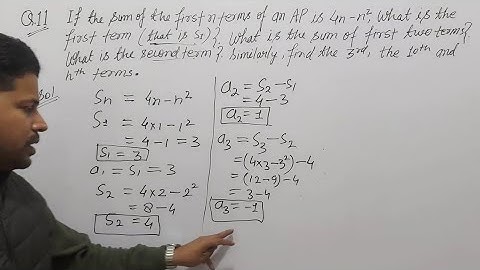 Q.11 If the sum of the first n terms of an AP is 4n-n², What is the
first term (that is S1)? What is the sum of first two terms?
What is the second term? Similarly, find the 3rd, the 10th and
nth terms.
Sol.
Sn = 4n-n²
S1 = 4×1-1²
= 4-1 = 3
S1 = 3
a1 = S1 = 3
S2 = 4×2-2²
= 8-4
S2 = 4
a2 = S2-S1
= 4-3
a2 = 1
a3 = S3-S2
= (4×3-3²)-4
= (12-9)-4
= 3-4
a3 = -1